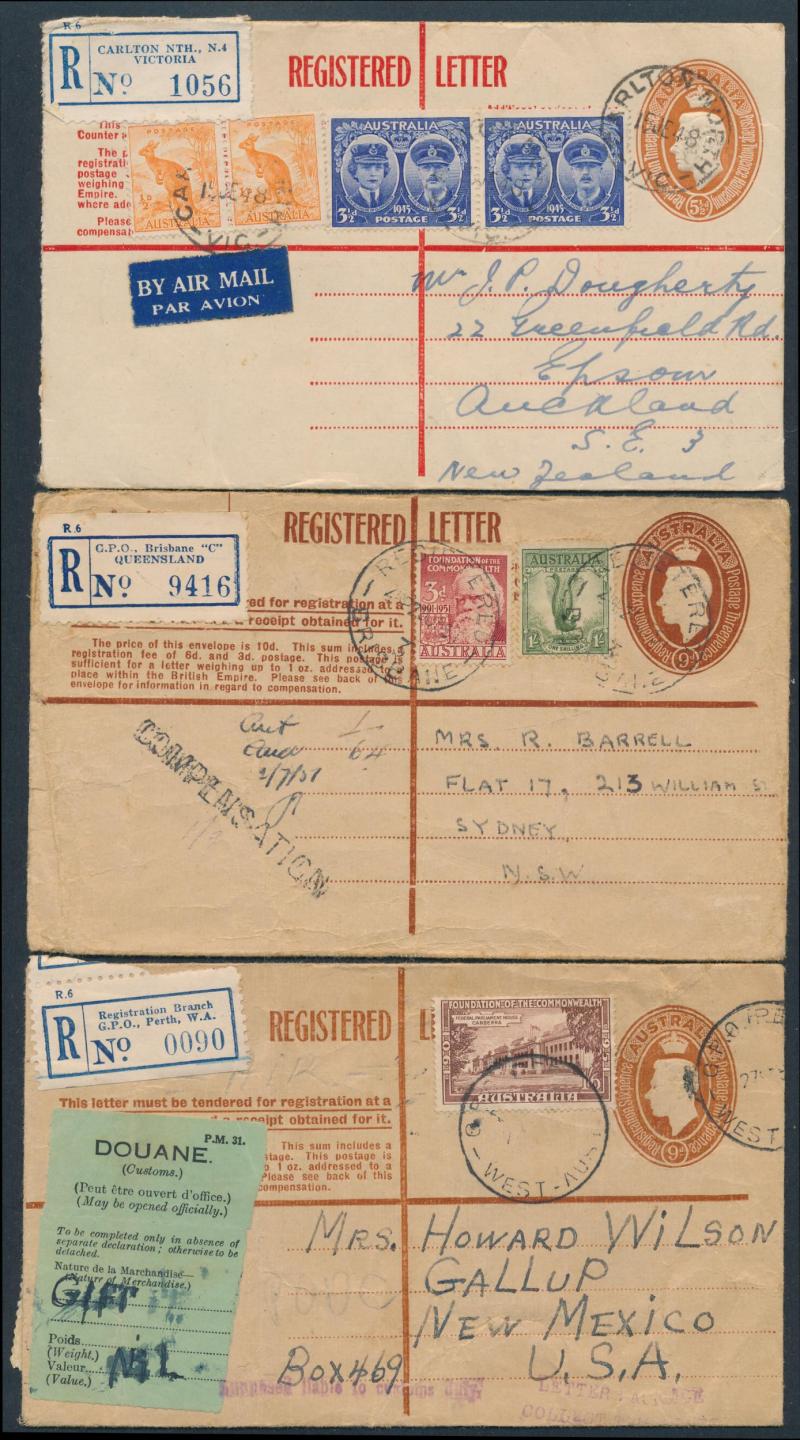 R 6
CARLTON NTH., N.4
VICTORIA
R No 1056
REGISTERED LETTER
This
Counter
The p
registrati
postage
weighing
Empire.
where ade
Please
compensat
POSTAGE
½D
AUSTRALIA
POSTAGE
AUSTRALIA
AUSTRALIA
3½D 1945 3½D
POSTAGE
AUSTRALIA
3½D 1945 3½D
POSTAGE
15 JE 48
VIC
CARLTON NORTH
15 JE 48
VIC
AUSTRALIA
5½D
BY AIR MAIL
PAR AVION
Mr J. P. Dougherty
22 Greenfield Rd.
Epsom
Auckland
S. E. 3
New Zealand
R.6
G.P.O., Brisbane "C"
QUEENSLAND
R No 9416
REGISTERED LETTER
ered for registration at a
a receipt obtained for it.
The price of this envelope is 10d. This sum includes a
registration fee of 6d. and 3d. postage. This postage is
sufficient for a letter weighing up to 1 oz. addressed to a
place within the British Empire. Please see back of this
envelope for information in regard to compensation.
FOUNDATION OF THE
COMMONWEALTH
3d
1901-1951
AUSTRALIA
AUSTRALIA
POSTAGE
1/- ONE SHILLING 1/-
REGISTERED
BRISBANE
AUSTRALIA
Registration Sixpence Postage Threepence
9D
2/7/51
COMPENSATION
MRS. R. BARRELL
FLAT 17, 213 WILLIAM ST
SYDNEY
N.S.W
R.6
Registration Branch
G.P.O., Perth, W.A.
R No 0090
REGISTERED
This letter must be tendered for registration at a
d a receipt obtained for it.
This sum includes a
stage. This postage is
p to 1 oz. addressed to a
Please see back of this
compensation.
FOUNDATION OF THE COMMONWEALTH
FEDERAL PARLIAMENT HOUSE
CANBERRA
1901 1951
AUSTRALIA
WEST-AUST
AUSTRALIA
Registration Sixpence Postage Threepence
9D
WEST
P.M. 31.
DOUANE.
(Customs.)
(Peut être ouvert d'office.)
(May be opened officially.)
To be completed only in absence of
separate declaration; otherwise to be
detached.
Nature de la Marchandise—
(Nature of Merchandise.)
GIFT
Poids
(Weight.)
Valeur
(Value.) NIL
MRS. HOWARD WILSON
GALLUP
NEW MEXICO
BOX 469 U.S.A.
Supposed liable to customs duty.
LETTER PACKAGE
COLLECT